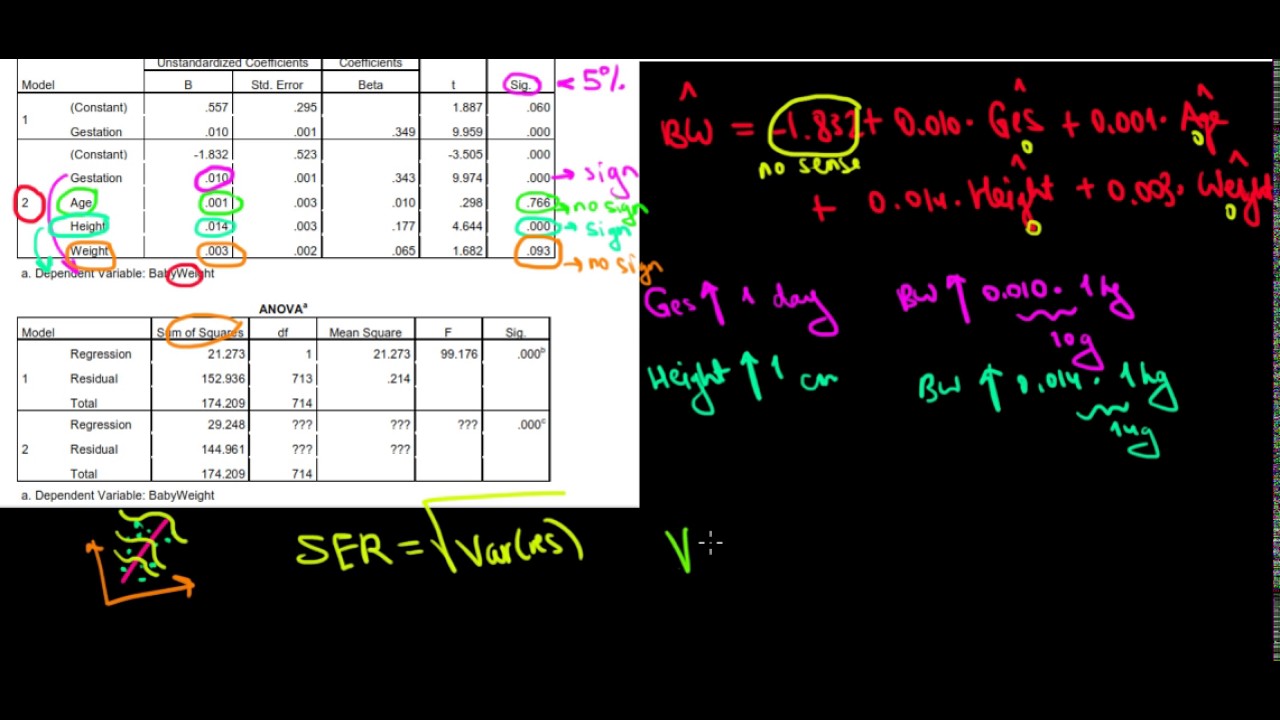 Unstandardized Coefficients Coefficients
Model B Std. Error Beta t Sig. < 5%
1 (Constant) .557 .295 1.887 .060
Gestation .010 .001 .349 9.959 .000
2 (Constant) -1.832 .523 -3.505 .000
Gestation .010 .001 .343 9.974 .000 → sign
Age .001 .003 .010 .298 .766 → no sign
Height .014 .003 .177 4.644 .000 → sign
Weight .003 .002 .065 1.682 .093 → no sign
a. Dependent Variable: BabyWeight
ANOVAᵃ
Model Sum of Squares df Mean Square F Sig.
1 Regression 21.273 1 21.273 99.176 .000ᵇ
Residual 152.936 713 .214
Total 174.209 714
2 Regression 29.248 ??? ??? ??? .000ᶜ
Residual 144.961 ??? ???
Total 174.209 714
a. Dependent Variable: BabyWeight
B̂W = -1.832 + 0.010 · Ges + 0.001 · Age
no sense
+ 0.014 · Height + 0.003 · Weight
Ges ↑ 1 day BW ↑ 0.010 · 1 kg
10g
Height ↑ 1 cm BW ↑ 0.014 · 1 kg
14g
SER = √Var(res) V